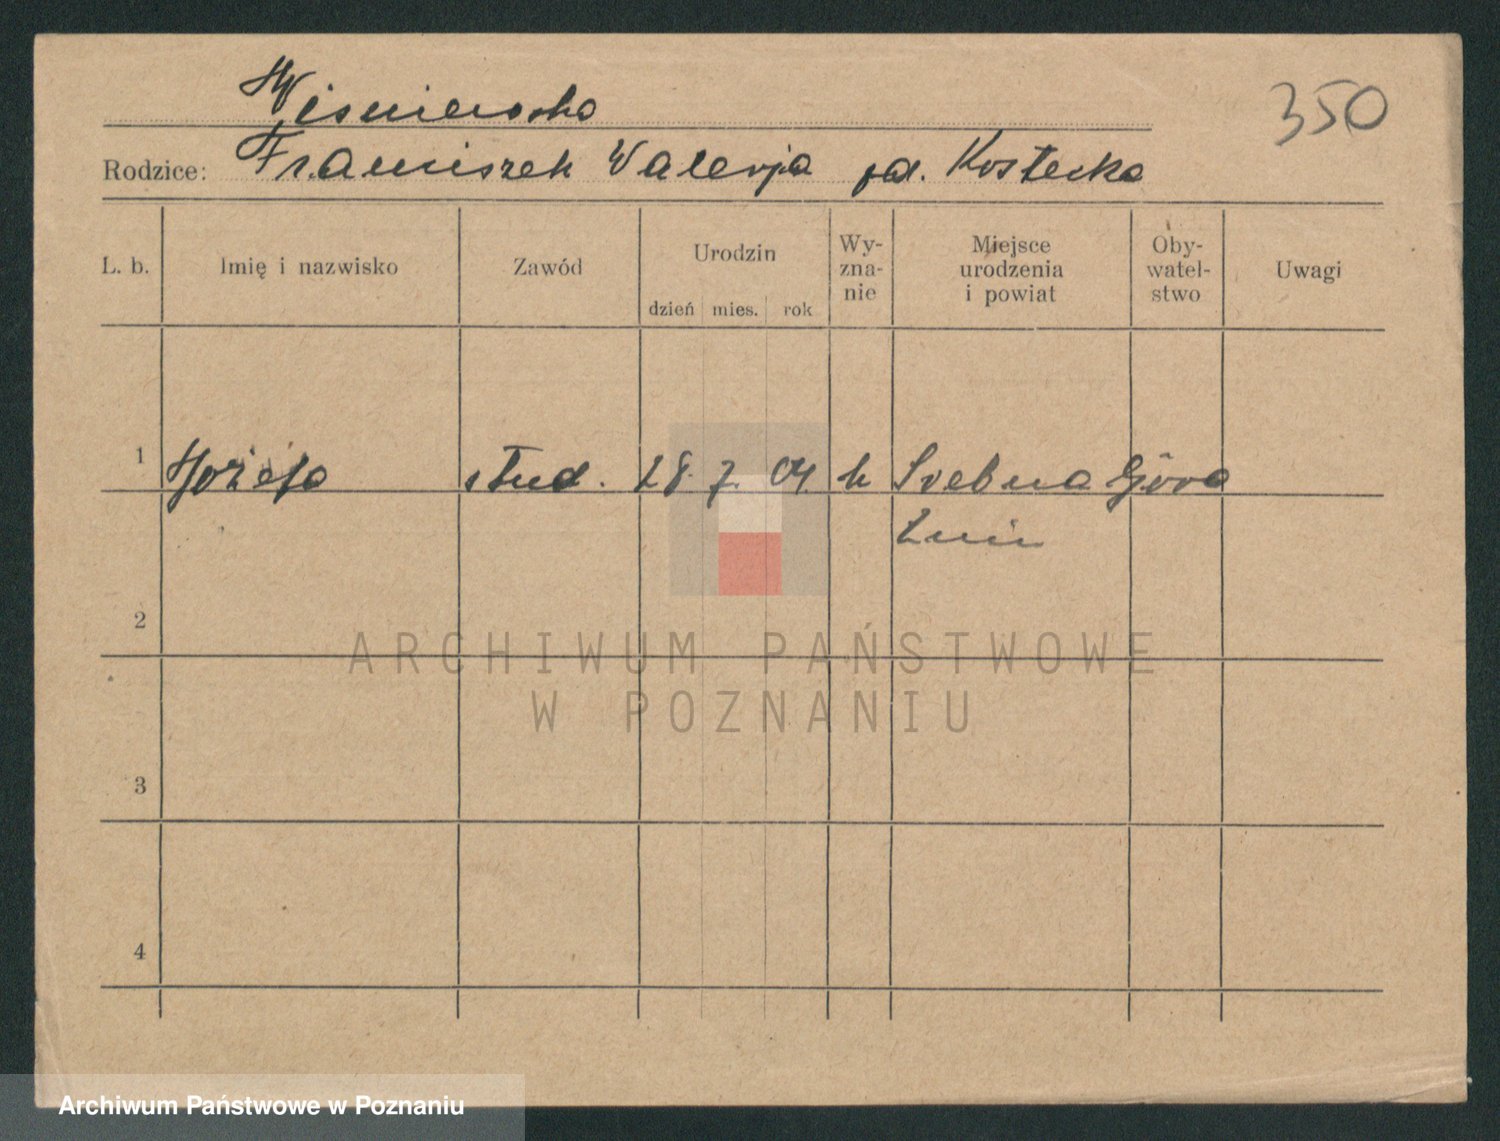 Wiśniewska
350
Rodzice: Franciszek Walerja zd. Kostecka
L. b. Imię i nazwisko Zawód Urodzin Wy-zna-nie Miejsce urodzenia i powiat Oby-watel-stwo Uwagi
dzień mies. rok
1 Józefa stud. 28. 7. 04. k Srebrna Góra
Żnin
2
ARCHIWUM PAŃSTWOWE
W POZNANIU
3
4
Archiwum Państwowe w Poznaniu